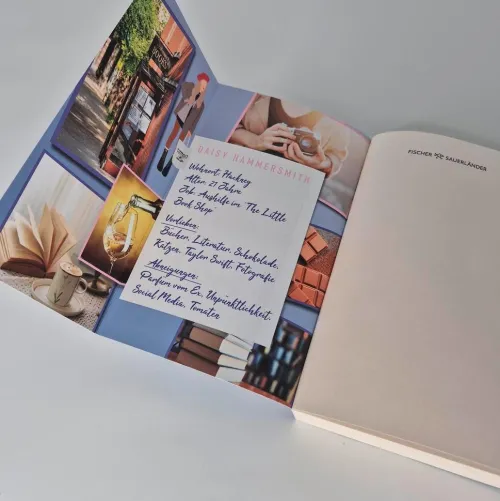 DAISY HAMMERSMITH
Wohnort: Hackney
Alter: 21 Jahre
Job: Aushilfe im The Little
Book Shop
Vorlieben:
Bücher, Literatur, Schokolade,
Katzen, Taylor Swift, Fotografie
Abneigungen:
Parfum vom Ex, Unpünktlichkeit,
Social Media, Tomaten
FISCHER SAUERLÄNDER